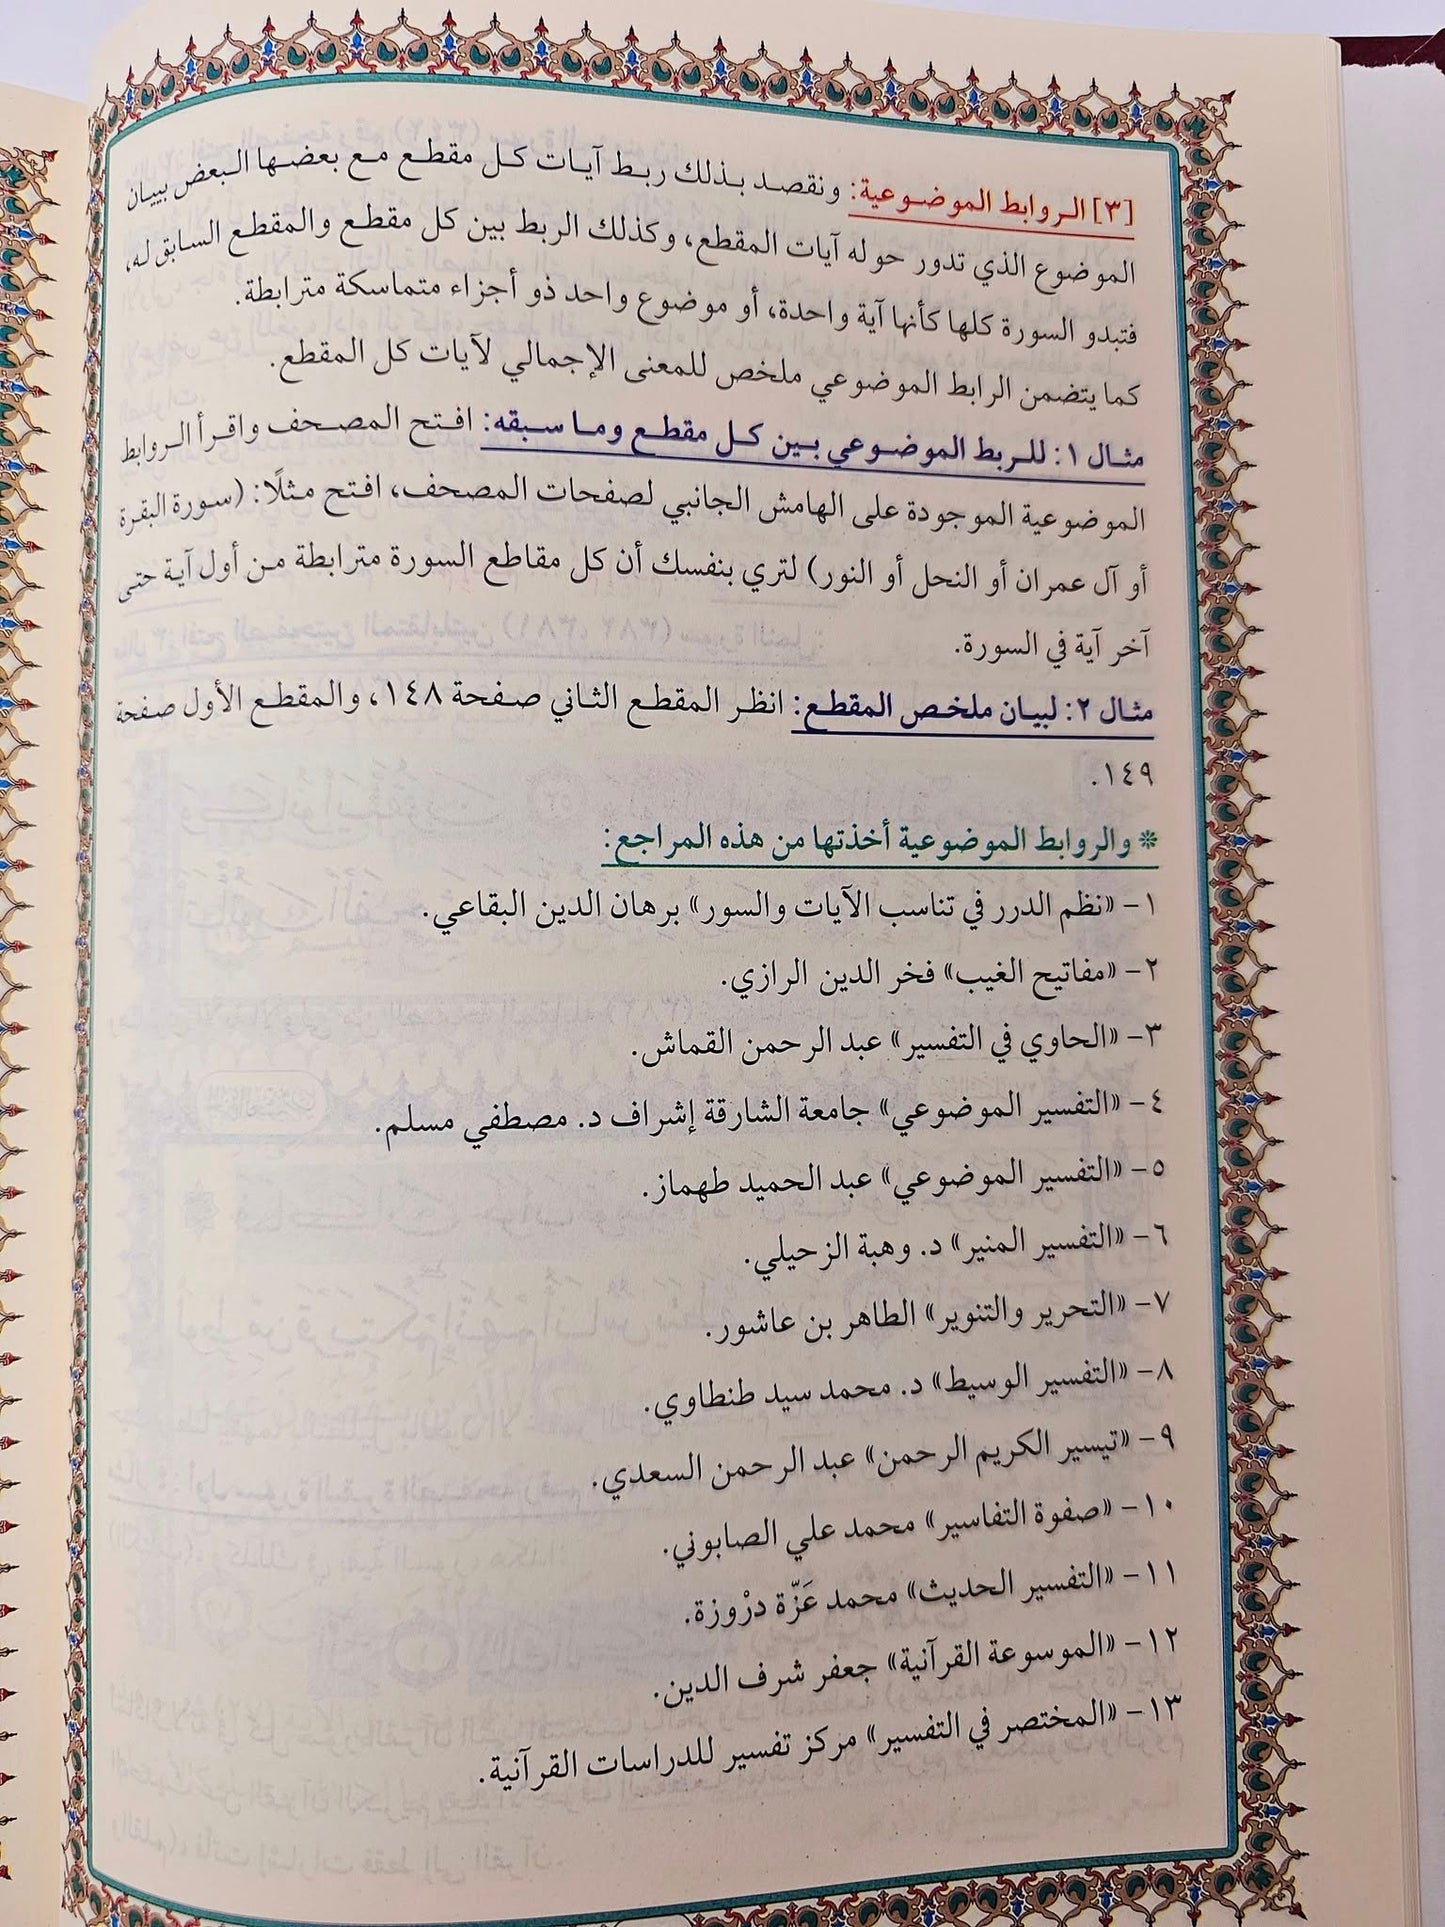 [٣] الروابط الموضوعية: ونقصد بذلك ربط آيات كل مقطع مع بعضها البعض ببيان
الموضوع الذي تدور حوله آيات المقطع، وكذلك الربط بين كل مقطع والمقطع السابق له،
فتبدو السورة كلها كأنها آية واحدة، أو موضوع واحد ذو أجزاء متماسكة مترابطة.
كما يتضمن الرابط الموضوعي ملخص للمعنى الإجمالي لآيات كل المقطع.
مثال ١: للربط الموضوعي بين كل مقطع وما سبقه: افتح المصحف واقرأ الروابط
الموضوعية الموجودة على الهامش الجانبي لصفحات المصحف، افتح مثلًا: (سورة البقرة
أو آل عمران أو النحل أو النور) لتري بنفسك أن كل مقاطع السورة مترابطة من أول آية حتى
آخر آية في السورة.
مثال ٢: لبيان ملخص المقطع: انظر المقطع الثاني صفحة ١٤٨، والمقطع الأول صفحة
١٤٩.
* والروابط الموضوعية أخذتها من هذه المراجع:
١- «نظم الدرر في تناسب الآيات والسور» برهان الدين البقاعي.
٢- «مفاتيح الغيب» فخر الدين الرازي.
٣- «الحاوي في التفسير» عبد الرحمن القماش.
٤- «التفسير الموضوعي» جامعة الشارقة إشراف د. مصطفي مسلم.
٥- «التفسير الموضوعي» عبد الحميد طهماز.
٦- «التفسير المنير» د. وهبة الزحيلي.
٧- «التحرير والتنوير» الطاهر بن عاشور.
٨- «التفسير الوسيط» د. محمد سيد طنطاوي.
٩- «تيسير الكريم الرحمن» عبد الرحمن السعدي.
١٠- «صفوة التفاسير» محمد علي الصابوني.
١١- «التفسير الحديث» محمد عَزّة درْوزة.
١٢- «الموسوعة القرآنية» جعفر شرف الدين.
١٣- «المختصر في التفسير» مركز تفسير للدراسات القرآنية.